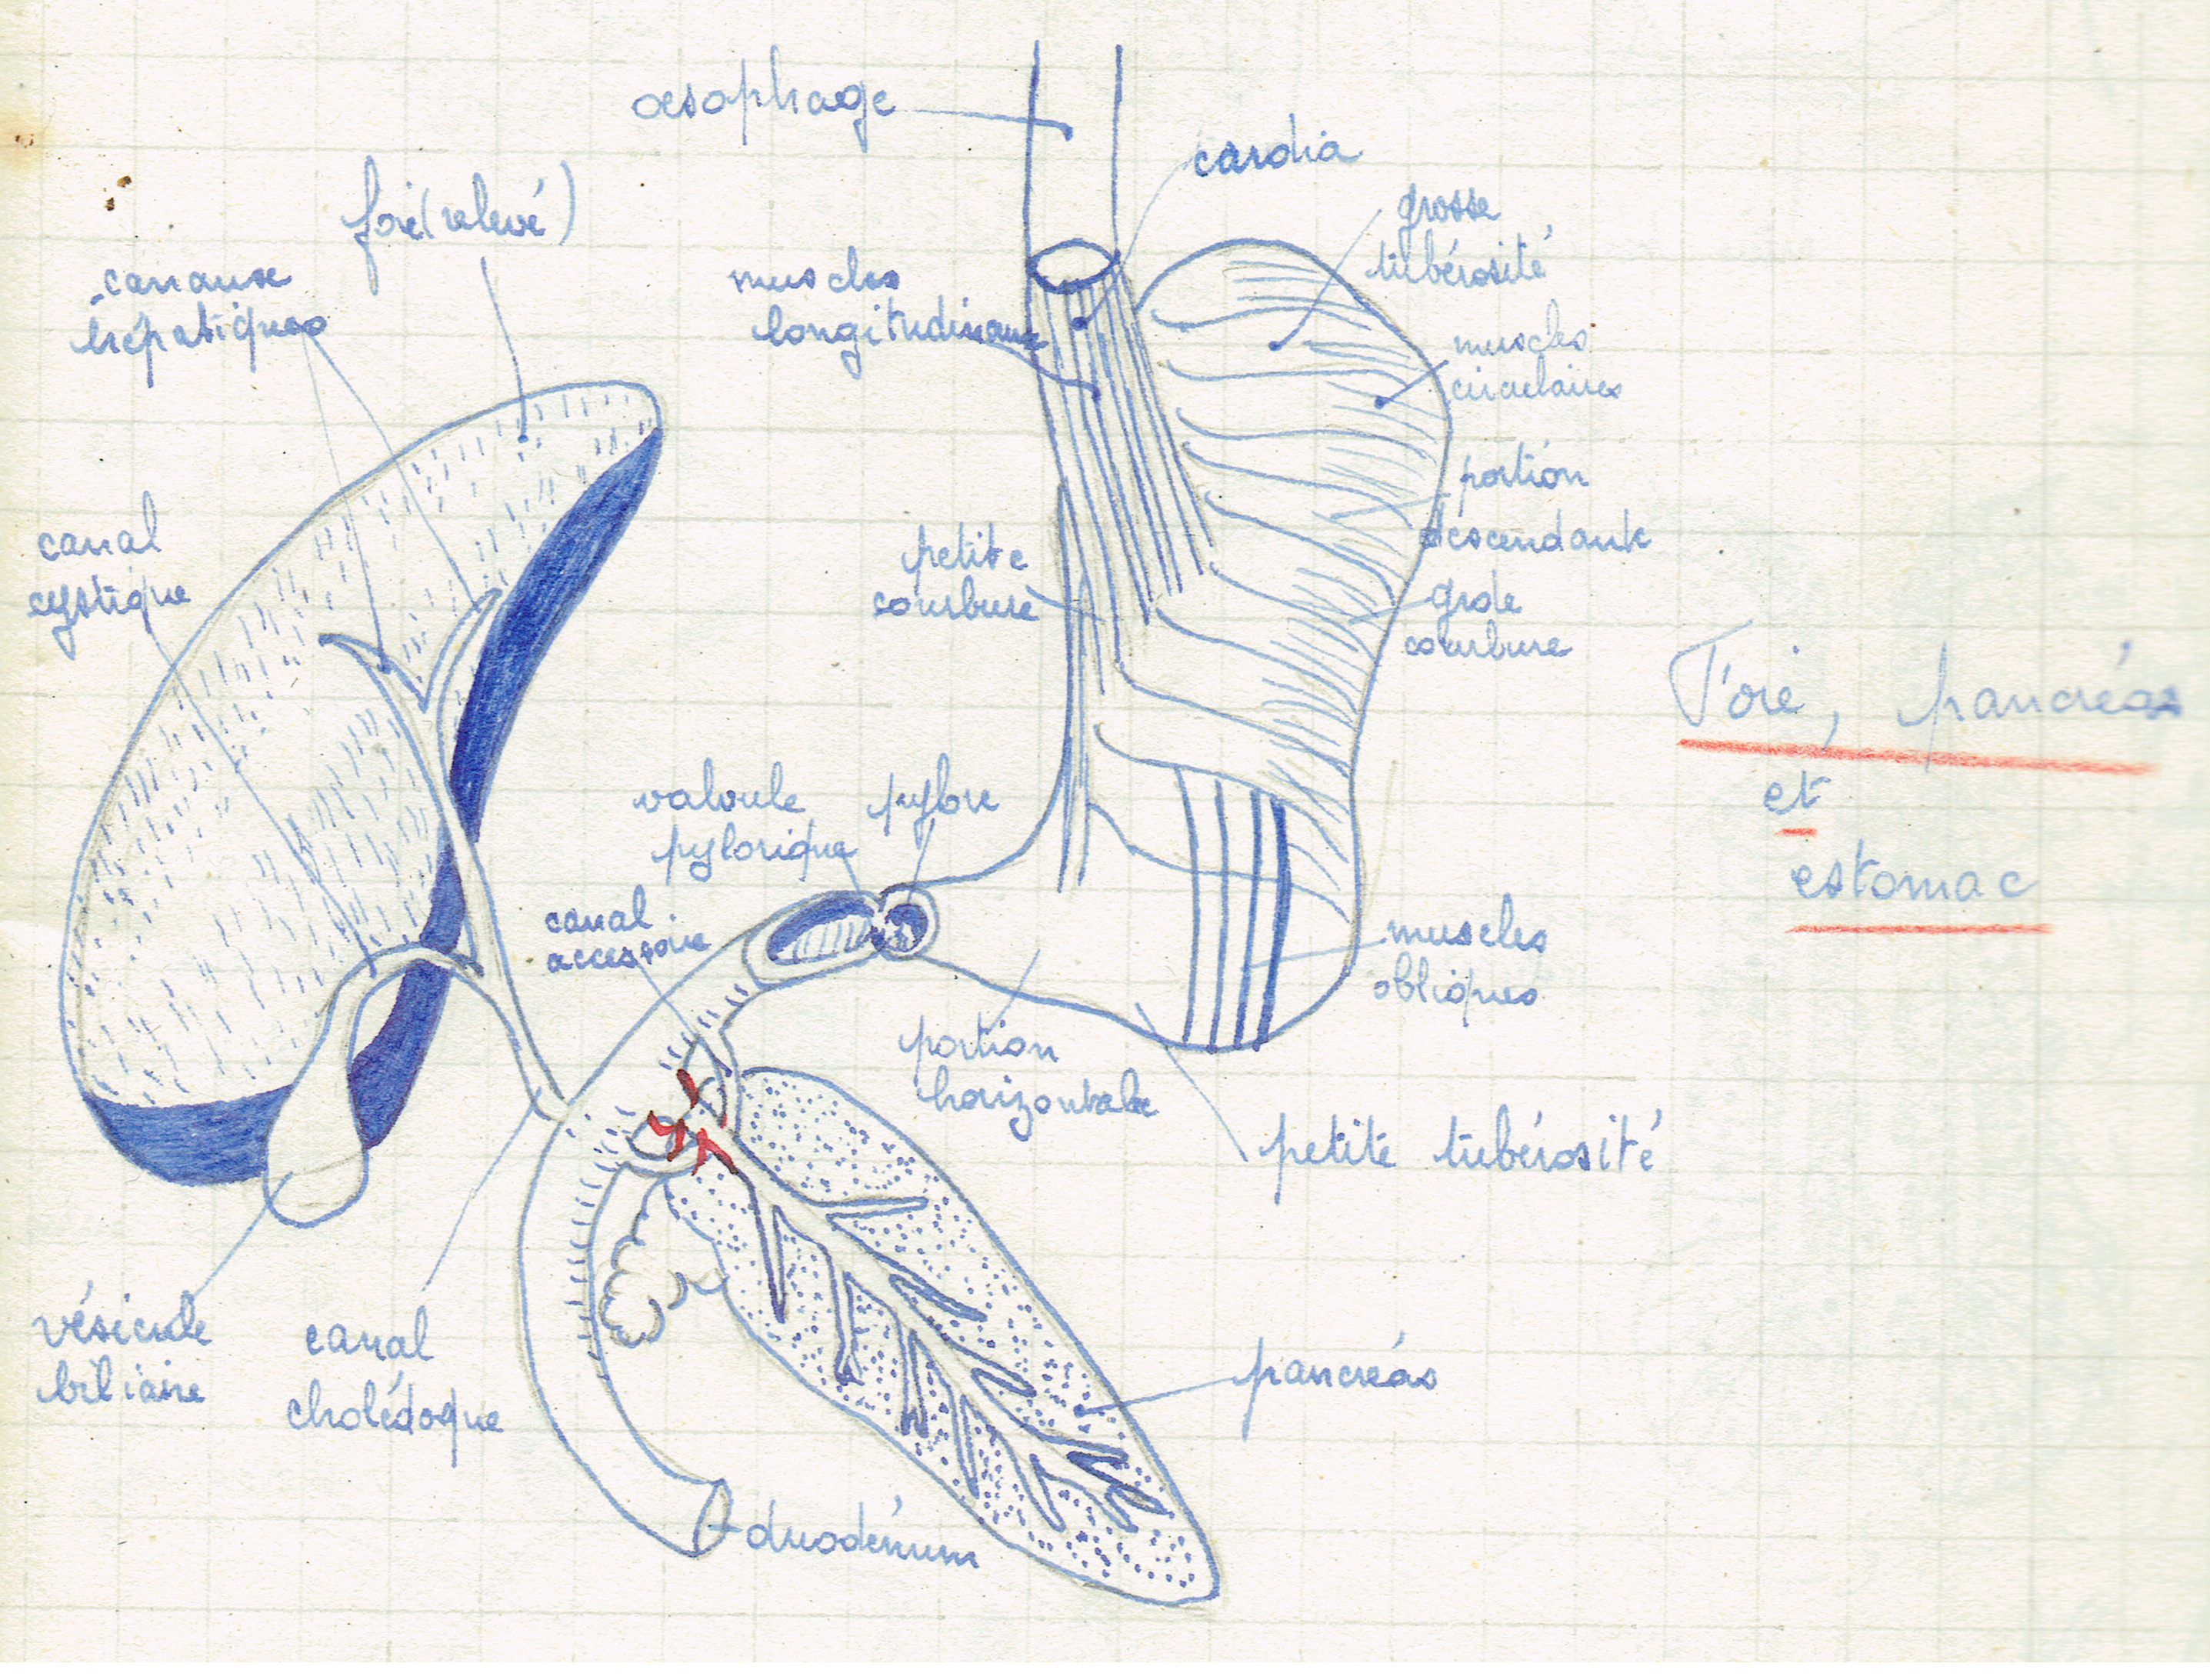 oesophage
cardia
foie (relevé)
grosse
tubérosité
canaux
hépatiques
muscles
longitudinaux
muscles
circulaires
portion
descendante
canal
cystique
petite
courbure
grde
courbure
Foie, pancréas
et
estomac
valvule
pylorique
pylore
canal
accessoire
muscles
obliques
portion
horizontale
petite tubérosité
vésicule
biliaire
canal
cholédoque
pancréas
duodénum